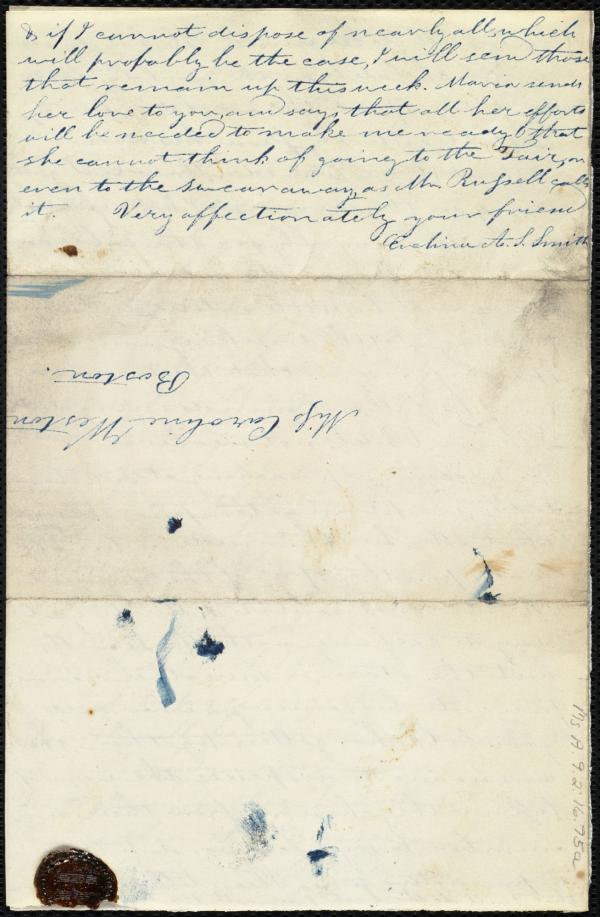 & if I cannot dispose of nearly all, which
will probably be the case, I will send those
that remain up this week. Maria sends
her love to you, and says, that all her efforts
will be needed to make me ready & that
she cannot think of going to the Fair, or
even to the swearaway, as Mr. Russell calls
it. Very affectionately your friend
Evelina A. S. Smith
Miss Caroline Weston
Boston.
Ms. A. 9. 2. 16. 75a